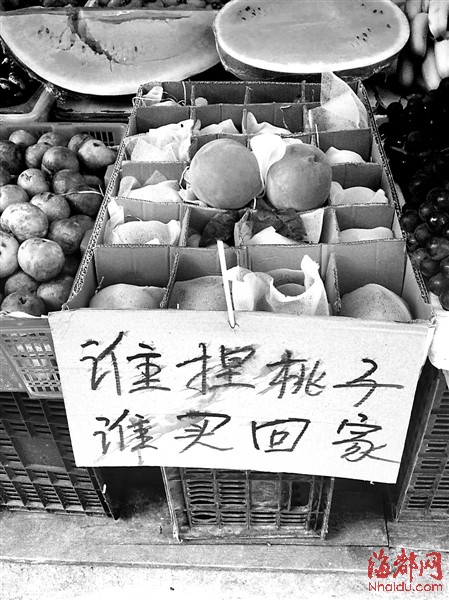 谁捏桃子
谁买回家
海都网
Nhaidu.com